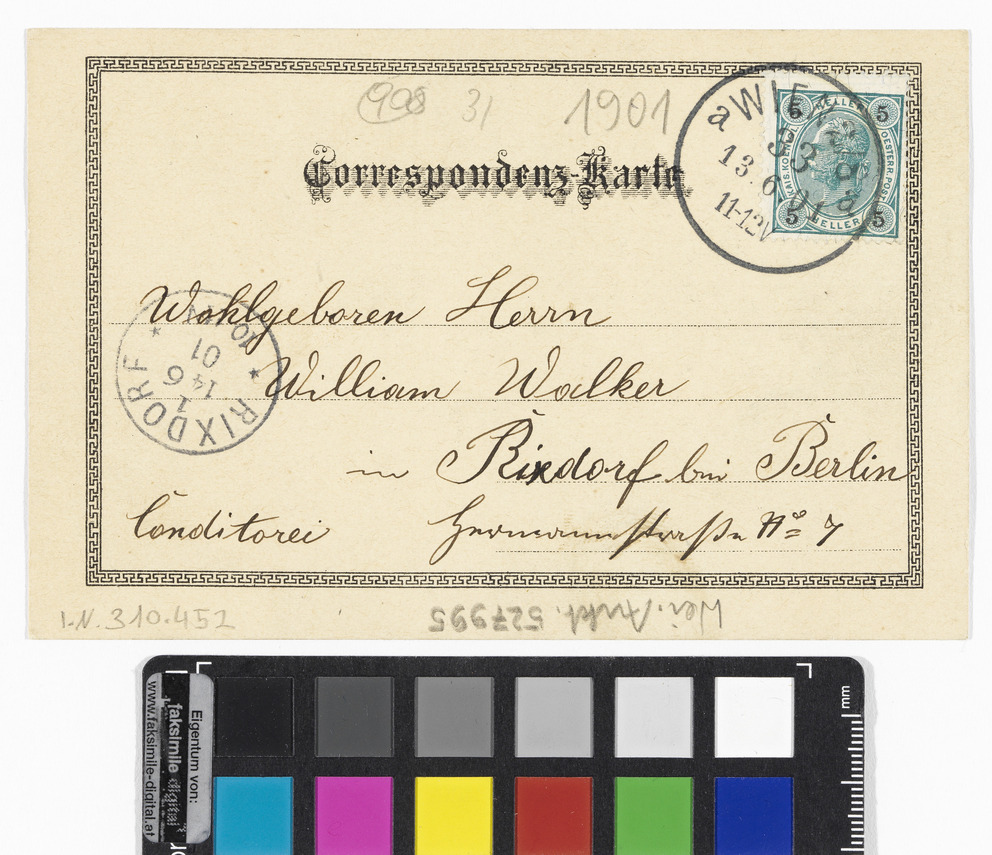 998 31 1901
Correspondenz-Karte
a WIEN
13.6.01
11-12V
5 HELLER 5
KAIS.KÖNIGL. OESTERR.POST
5 HELLER 5
RIXDORF
* 1 *
14 6
01
Wohlgeboren Herrn
William Walker
in Rixdorf bei Berlin
Conditorei Hermannstraße No 7
I.N. 310.452
527995
mm
Eigentum von:
faksimile digital
www.faksimile-digital.at